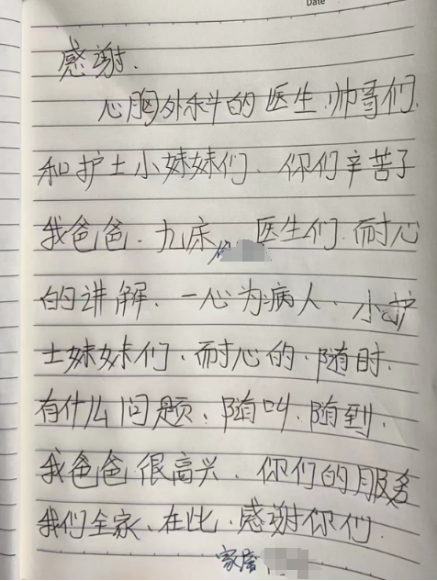 Date
感谢.
心胸外科的医生.帅哥们.
和护士小妹妹们、你们辛苦了
我爸爸.九床 医生们.耐心
的讲解.一心为病人.小护
士妹妹们.耐心的.随时.
有什么问题、随叫.随到.
我爸爸很高兴.你们的服务
我们全家、在此.感谢你们.
家属